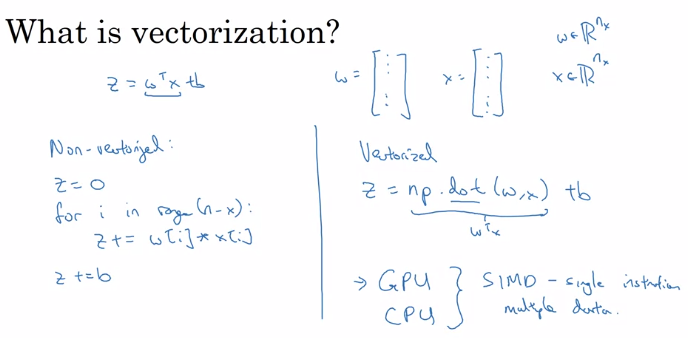 What is vectorization?
z = wᵀx + b
w = [⋮] x = [⋮] w ∈ ℝⁿˣ
x ∈ ℝⁿˣ
Non-vectorized:
z = 0
for i in range(n-x):
z += w[i] * x[i]
z += b
Vectorized
z = np.dot(w,x) + b
wᵀx
→ GPU } SIMD - single instruction
CPU multiple data.